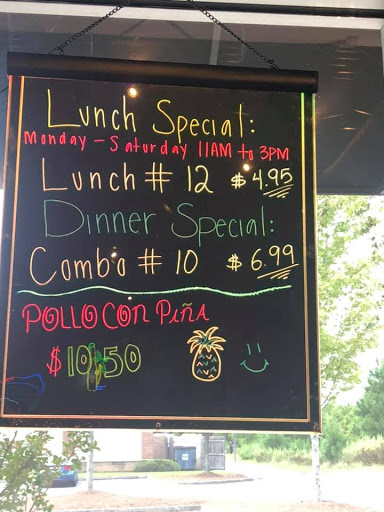 Lunch Special:
Monday - Saturday 11AM to 3PM
Lunch # 12 $ 4.95
Dinner Special:
Combo # 10 $ 6.99
POLLO CON PIÑA
$10.50